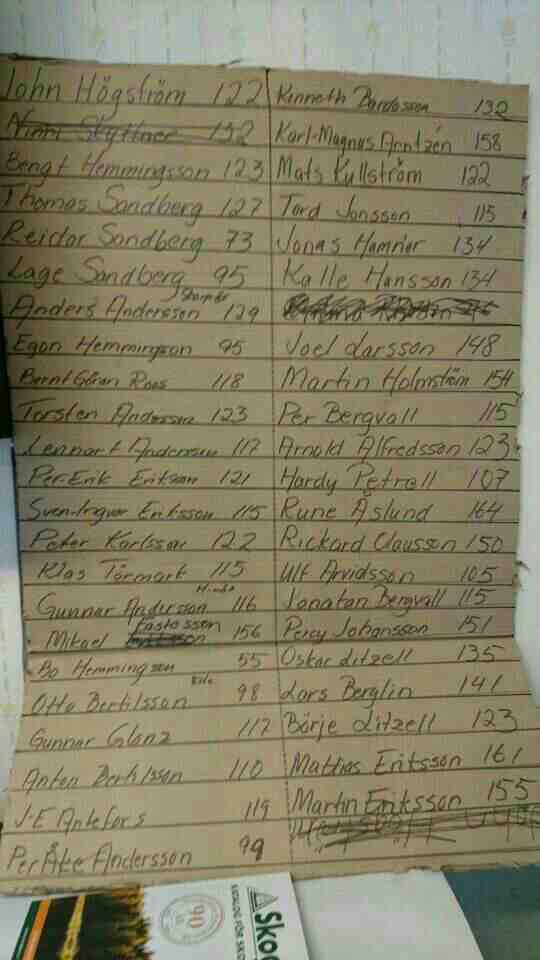 John Högström 122
Ninni Skyttner 132
Bengt Hemmingsson 123
Thomas Sandberg 127
Reidar Sandberg 73
Lage Sandberg 95
Anders Andersson 129
Egon Hemmingson 95
Bernt Göran Roos 118
Torsten Andersson 123
Lennart Andersson 117
Per-Erik Eriksson 121
Sven-Ingvar Eriksson 115
Peter Karlsson 122
Klas Törmark 115
Gunnar Andersson 116
Mikael 156
Bo Hemmingson 55
Otto Bertilsson 98
Gunnar Glanz 117
Anton Bertilsson 110
J-E Antefors 119
Per Åke Andersson 99
Kenneth 132
Karl-Magnus Arntzén 158
Mats Kullström 122
Tord Jonsson 115
Jonas 134
Kalle Hansson 134
Joel Larsson 148
Martin Holmström 154
Per Bergvall 115
Arnold Alfredsson 123
Hardy Petrell 107
Rune Åslund 164
Rickard Clausson 150
Ulf Arvidsson 105
Jonatan Bergvall 115
Percy Johansson 151
Oskar Litzell 135
Lars Berglin 141
Börje Litzell 123
Mattias Eritsson 161
Martin Eriksson 155
90
Skog
KATALOG FÖR